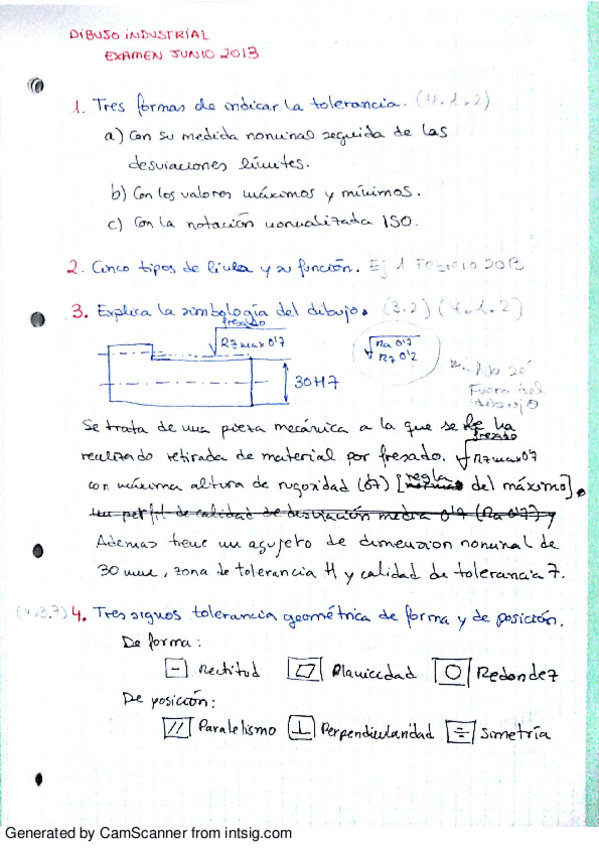 DIBUJO INDUSTRIAL
EXAMEN JUNIO 2013
1. Tres formas de indicar la tolerancia. (4.1.2)
a) Con su medida nominal seguida de las
desviaciones límites.
b) Con los valores máximos y mínimos.
c) Con la notación normalizada ISO.
2. Cinco tipos de línea y su función. Ej 1 Febrero 2013
3. Explica la simbología del dibujo. (3.2) (4.1.2)
fresado
Rzmax 0'7
Ra 0'7
Rz 0'2
30H7
Fuera del
dibujo
Se trata de una pieza mecánica a la que se le ha
realizado retirada de material por fresado. fresado Rzmax 0'7
con máxima altura de rugosidad (0'7) [regla del máximo].
un perfil de calidad de desviación media 0'7 (Ra 0'7) y
Ademas tiene un agujero de dimension nominal de
30 mm, zona de tolerancia H y calidad de tolerancia 7.
(4.3.7) 4. Tres signos tolerancia geométrica de forma y de posición.
De forma:
Rectitud Planicidad Redondez
De posición:
// Paralelismo ⊥ Perpendicularidad Simetría
Generated by CamScanner from intsig.com